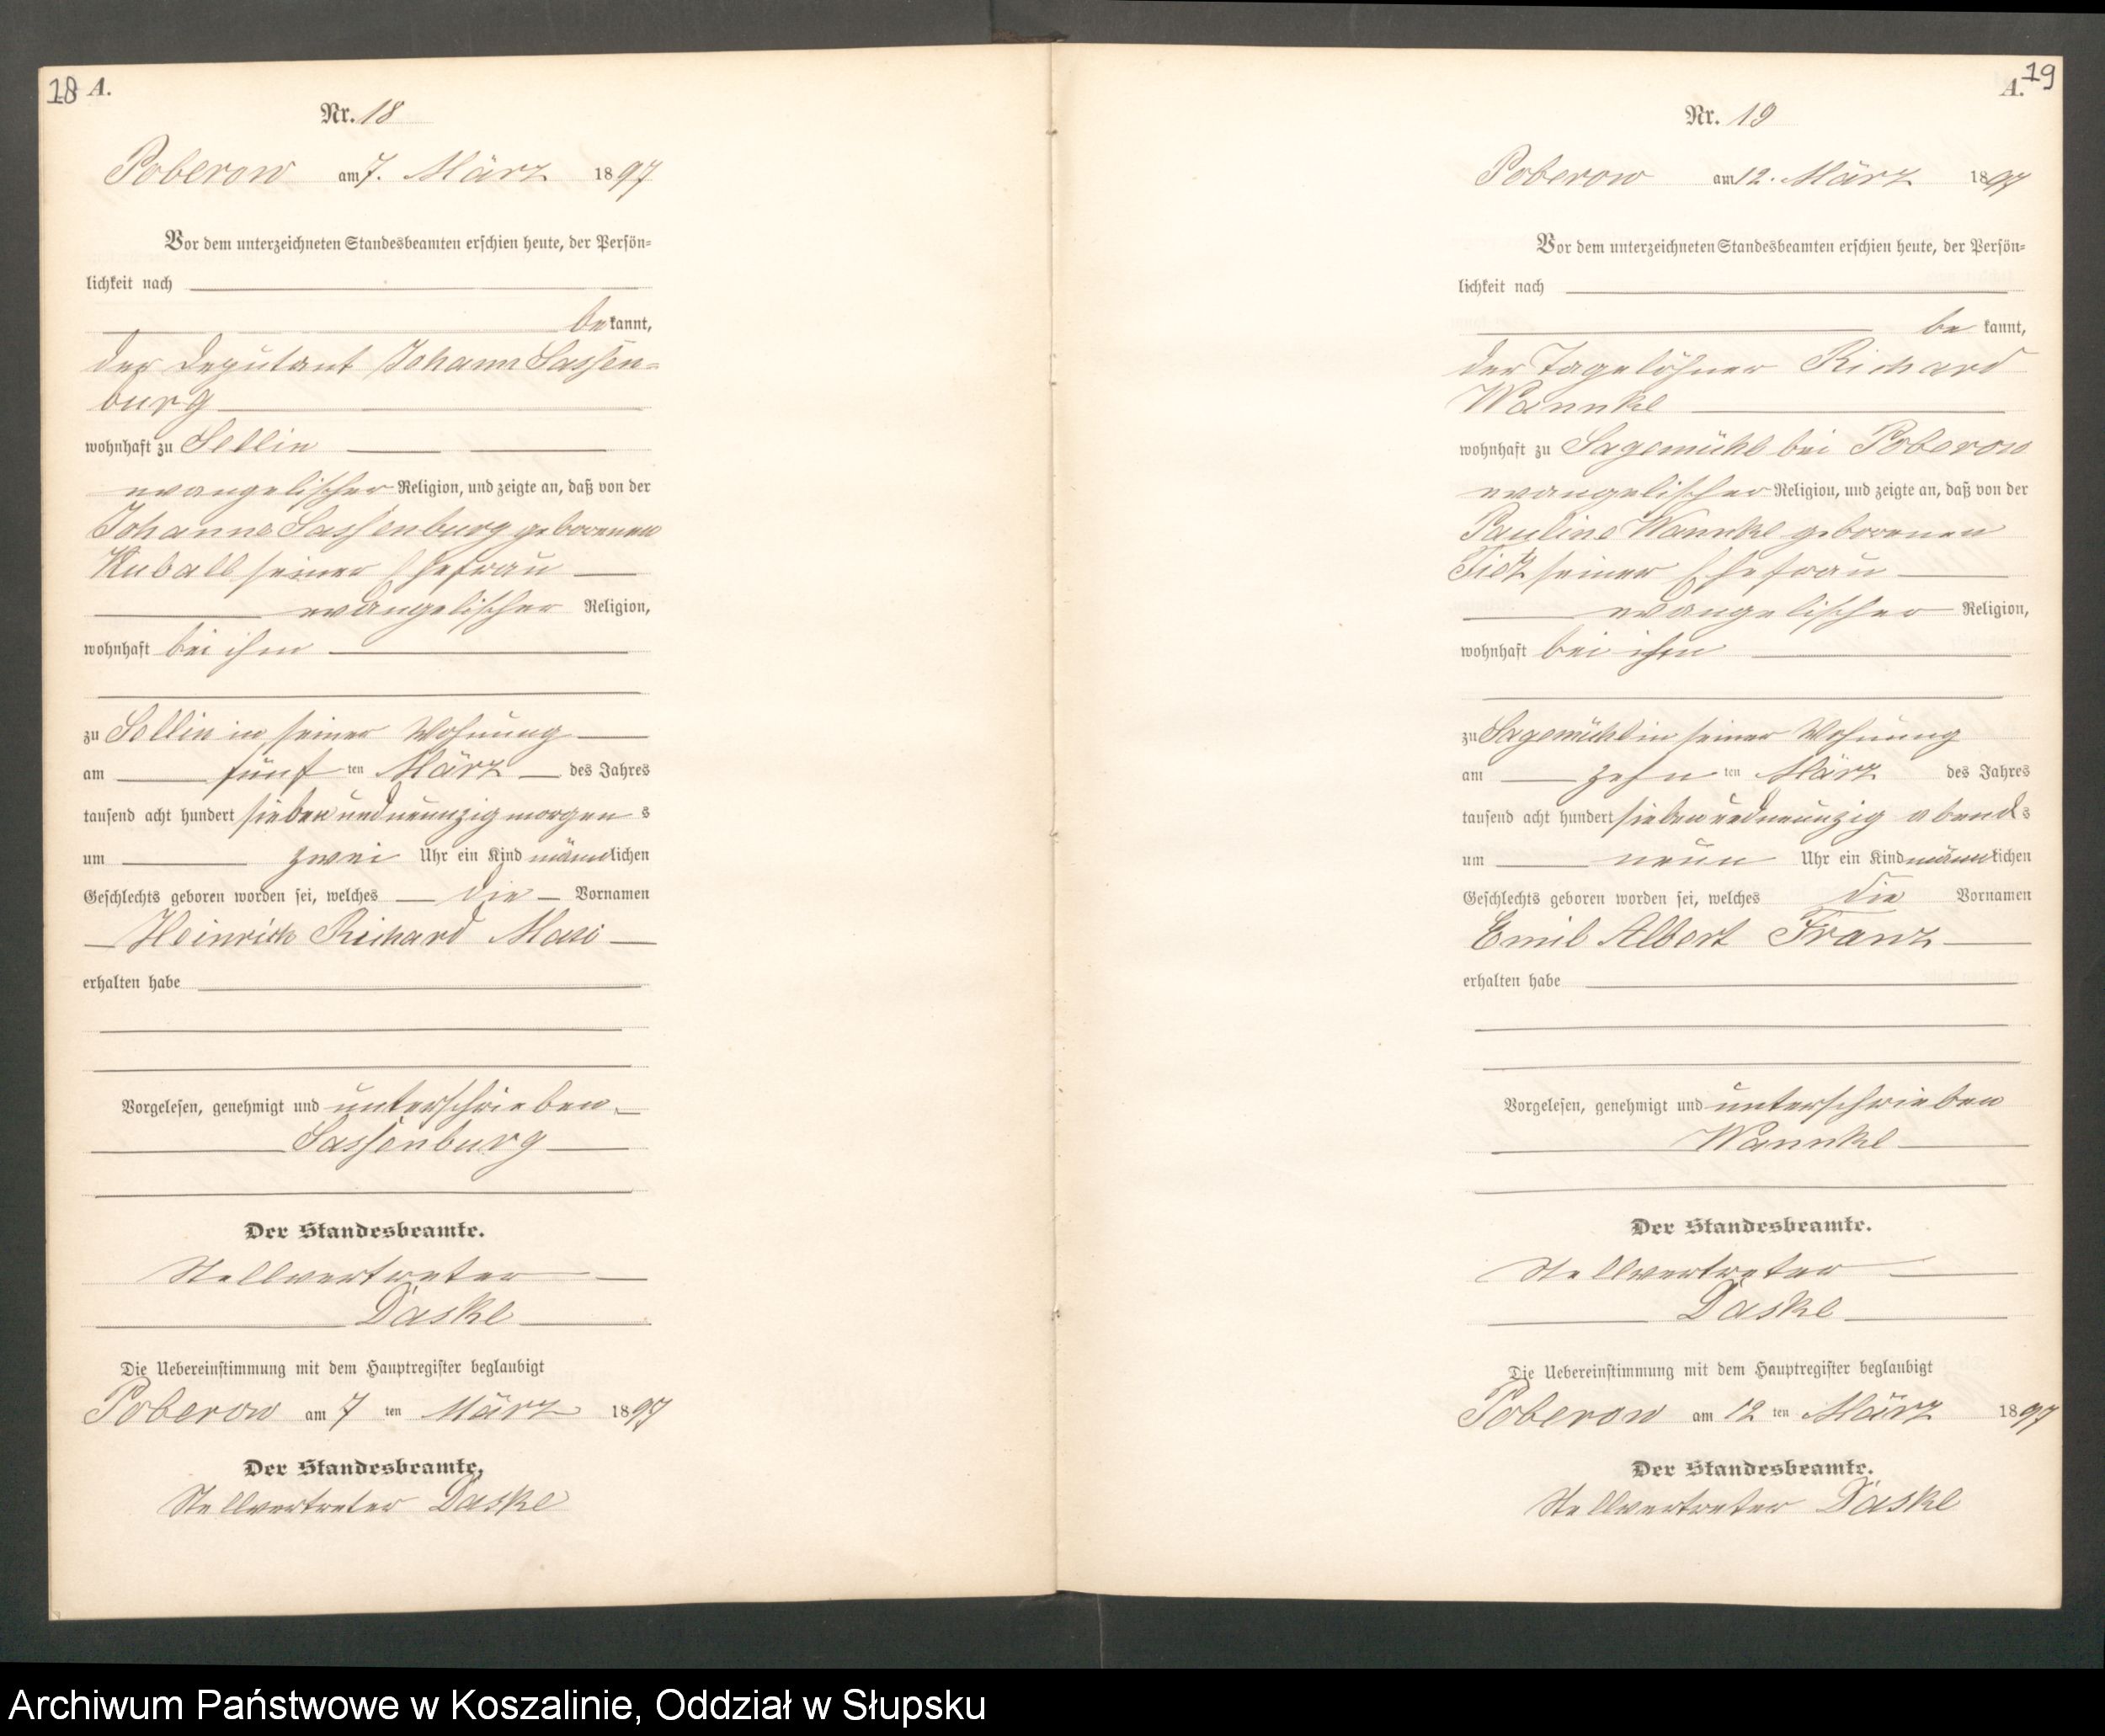 18 A.
Nr. 18
Poberow am 7. März 1897
Vor dem unterzeichneten Standesbeamten erschien heute, der Persön=
lichkeit nach
be kannt,
der Deputant Johann Sassen=
burg
wohnhaft zu Sellin
evangelischer Religion, und zeigte an, daß von der
Johanne Sassenburg geborenen
Kuball seiner Ehefrau
evangelischer Religion,
wohnhaft bei ihm
zu Sellin in seiner Wohnung
am fünf ten März des Jahres
tausend acht hundert siebenundneunzig morgen s
um zwei Uhr ein Kind männlichen
Geschlechts geboren worden sei, welches die Vornamen
Heinrich Richard
erhalten habe
Vorgelesen, genehmigt und unterschrieben
Sassenburg
Der Standesbeamte.
Stellvertreter
Daske
Die Uebereinstimmung mit dem Hauptregister beglaubigt
Poberow am 7 ten März 1897
Der Standesbeamte,
Stellvertreter Daske
A. 19
Nr. 19
Poberow am 12. März 1897
Vor dem unterzeichneten Standesbeamten erschien heute, der Persön=
lichkeit nach
be kannt,
der Tagelöhner Richard
Wannke
wohnhaft zu Sagemühl bei Poberow
evangelischer Religion, und zeigte an, daß von der
Pauline Wannke geborenen
Tietz seiner Ehefrau
evangelischer Religion,
wohnhaft bei ihm
zu Sagemühl in seiner Wohnung
am zehn ten März des Jahres
tausend acht hundert siebenundneunzig abend s
um neun Uhr ein Kind männlichen
Geschlechts geboren worden sei, welches die Vornamen
Emil Albert Franz
erhalten habe
Vorgelesen, genehmigt und unterschrieben
Wannke
Der Standesbeamte.
Stellvertreter
Daske
Die Uebereinstimmung mit dem Hauptregister beglaubigt
Poberow am 12 ten März 1897
Der Standesbeamte.
Stellvertreter Daske
Archiwum Państwowe w Koszalinie, Oddział w Słupsku